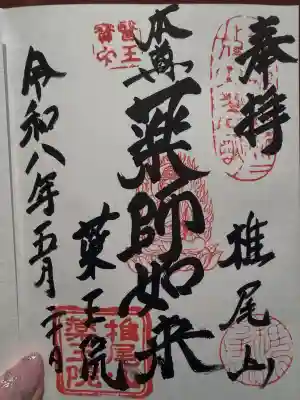 奉拝
椎尾山
本尊
薬師如来
薬王院
令和八年五月二十日
醫王
寳穴
椎尾
薬王院